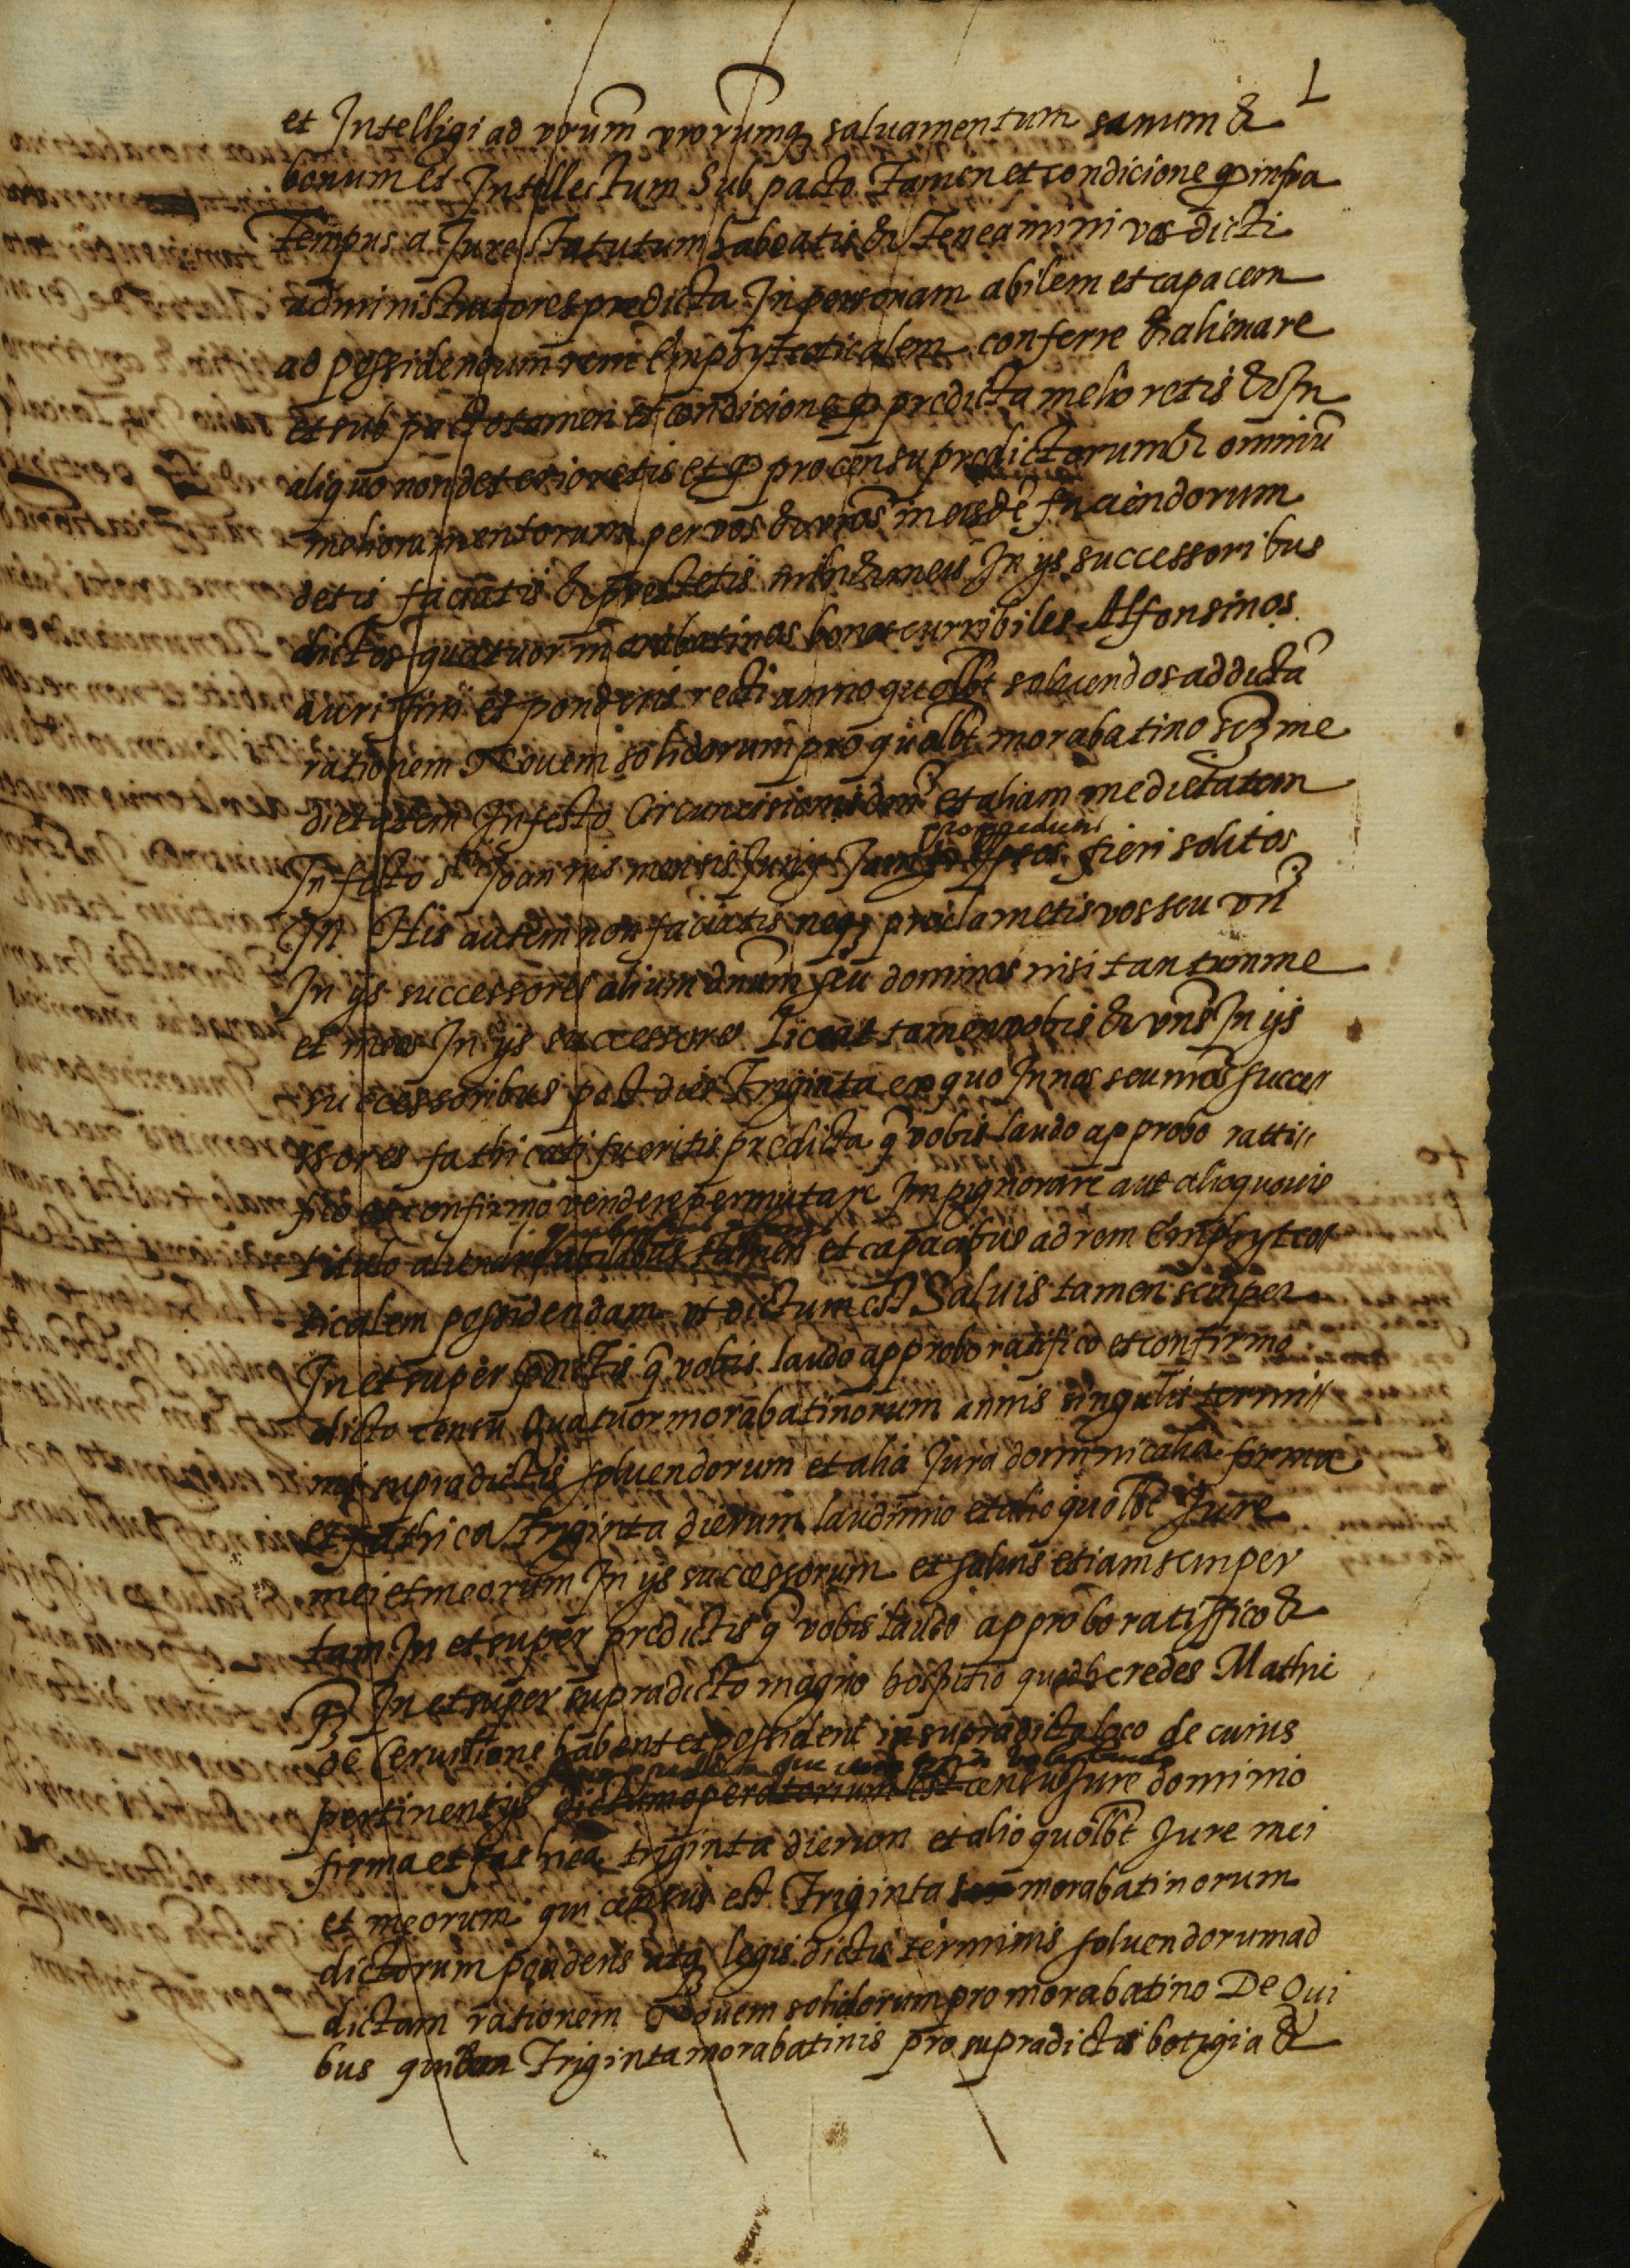 L
et Intelligi ad vr̃um vr̃orumq̃ saluamentum sanum &
bonum et Intellectum Sub pacto Tamen et condicione ꝙ infra
Tempus a Jure Statutum habeatis & Teneamini vos dicti
administratores predicta In personam abilem et capacem
ad possidendum rem Emphyteoticalem conferre & alienare
et sub pacto tamen et condicione ꝙ predicta melioretis & In
aliquo non deterioretis et ꝙ pro censu predictorum & omniũ
melioramentorum per vos & vr̃os in eisdẽ faciendorum
detis faciatis & prestetis mihi & meis In ijs successoribus
dictos quatuor morabatinos bonos curribiles Alfonsinos
auri fini et ponderis recti anno quolbt̃ soluendos ad dictã
rationem Nouem solidorum pro quolbt̃ morabatino scꝫ me
dietatem In festo Circuncisionis dom̃ et aliam medietatem
In festo Sti Joannis mensis Junij fieri solitos
In His autem non faciatis neqꝫ proclametis vos seu vr̃i
In ijs successores alium dñum seu dominos nisi tantum me
et meos In ijs successores Liceat tamen vobis & vr̃is In ijs
successoribus post dies Triginta ex quo In nos seu nr̃os succes
ssores fathicati fueritis predicta q̃ vobis laudo approbo ratti
fico et confirmo vendere permutare Impignorare aut alio quouis
titulo alienare abilibus tamen et capacibus ad rem Emphyteo
ticalem possidendam vt dictum est Saluis tamen semper
In et super pr̃dictis q̃ vobis laudo approbo ratifico et confirmo
dicto censu Quatuor morabatinorum annis singulis termi
nis supradictis soluendorum et alia Jura dominicalia firma
et fathica Triginta dierum laudimio et alio quolbt̃ Jure
mei et meorum In ijs successorum et saluis etiam semper
tam In et super predictis q̃ vobis laudo approbo ratiffico &
ꝙ In et super supradicto magno hospitio quod heredes Mathie
de Ceruilione habent et possident in supradicto loco de cuius
pertinentijs dictum operatorium est censu Jure dominio
firma et fathica triginta dierum et alio quolbt̃ Jure mei
et meorum qui census est Triginta morabatinorum
dictorum ponderis atqꝫ legis dictis terminis soluendorum ad
dictam rationem Nouem solidorum pro morabatino De Qui
bus quidem Triginta morabatinis pro supradictis botigia &